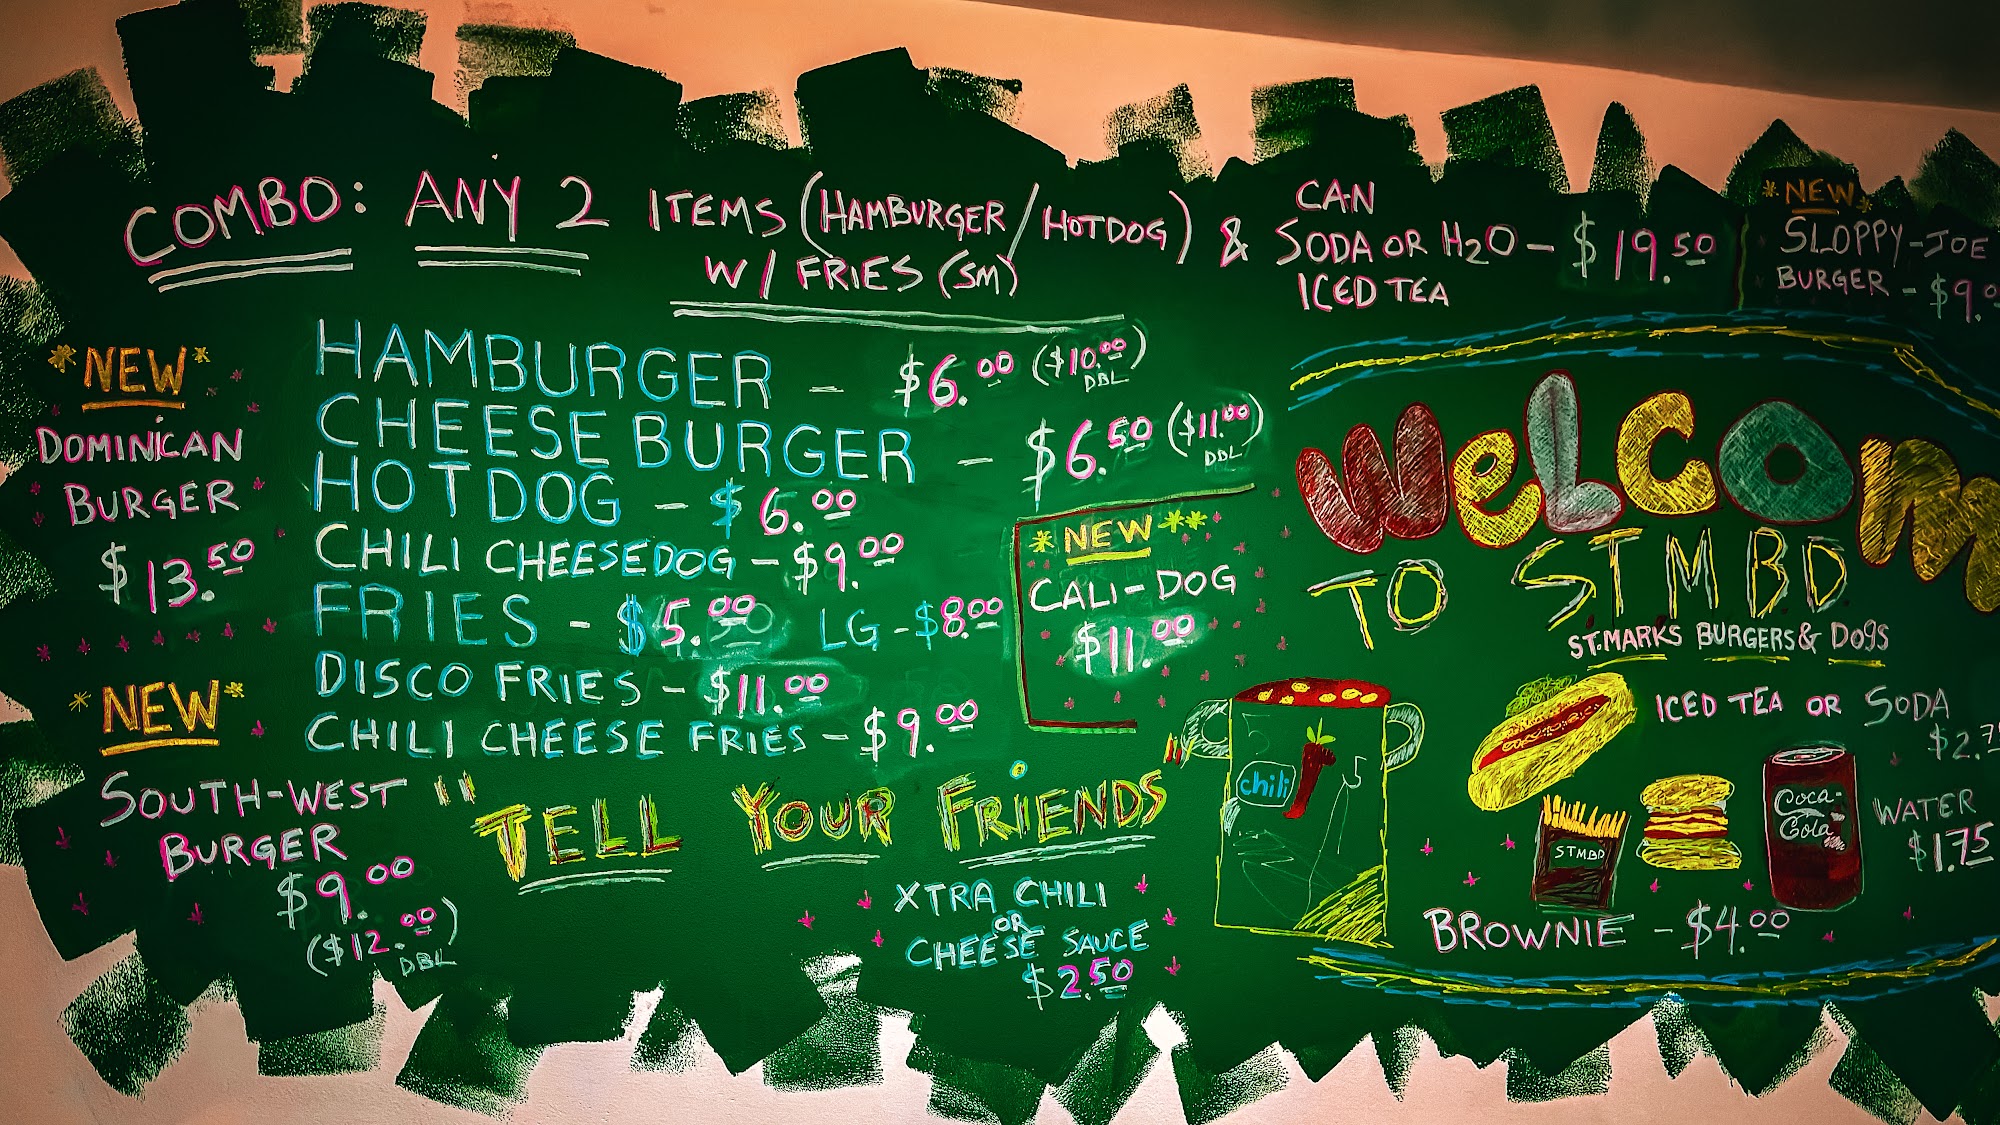 COMBO: ANY 2 ITEMS (HAMBURGER/HOTDOG) & CAN SODA OR H2O - $19.50
W/ FRIES (SM) ICED TEA
*NEW*
SLOPPY-JOE
BURGER - $9.
*NEW*
DOMINICAN
BURGER
$13.50
*NEW*
SOUTH-WEST
BURGER
$9.00
($12.00)
DBL
HAMBURGER - $6.00 ($10.00)
DBL
CHEESEBURGER - $6.50 ($11.00)
DBL
HOTDOG - $6.00
CHILI CHEESEDOG - $9.00
FRIES - $5.00 LG - $8.00
DISCO FRIES - $11.00
CHILI CHEESE FRIES - $9.00
*NEW**
CALI-DOG
$11.00
"TELL YOUR FRIENDS"
XTRA CHILI
OR
CHEESE SAUCE
$2.50
WELCOM
TO STMBD
ST.MARKS BURGERS & DOGS
chili
ICED TEA OR SODA
$2.7
STMBD
Coca-
Cola
WATER
$1.75
BROWNIE - $4.00